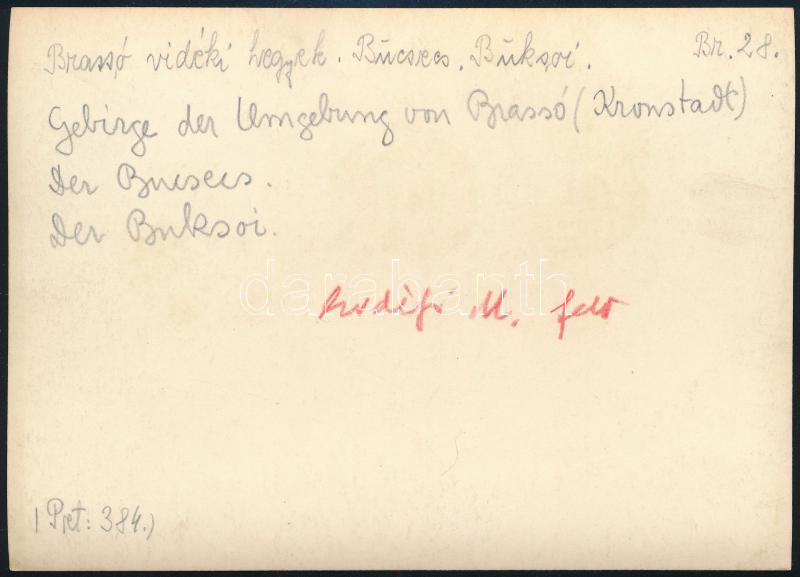 Brassó vidéki hegyek. Bucsecs. Buksoi. Br. 28.
Gebirge der Umgebung von Brassó (Kronstadt)
Der Bucsecs.
Der Buksoi.
darabanth
Erdélyi M. felv
(Pret: 384.)